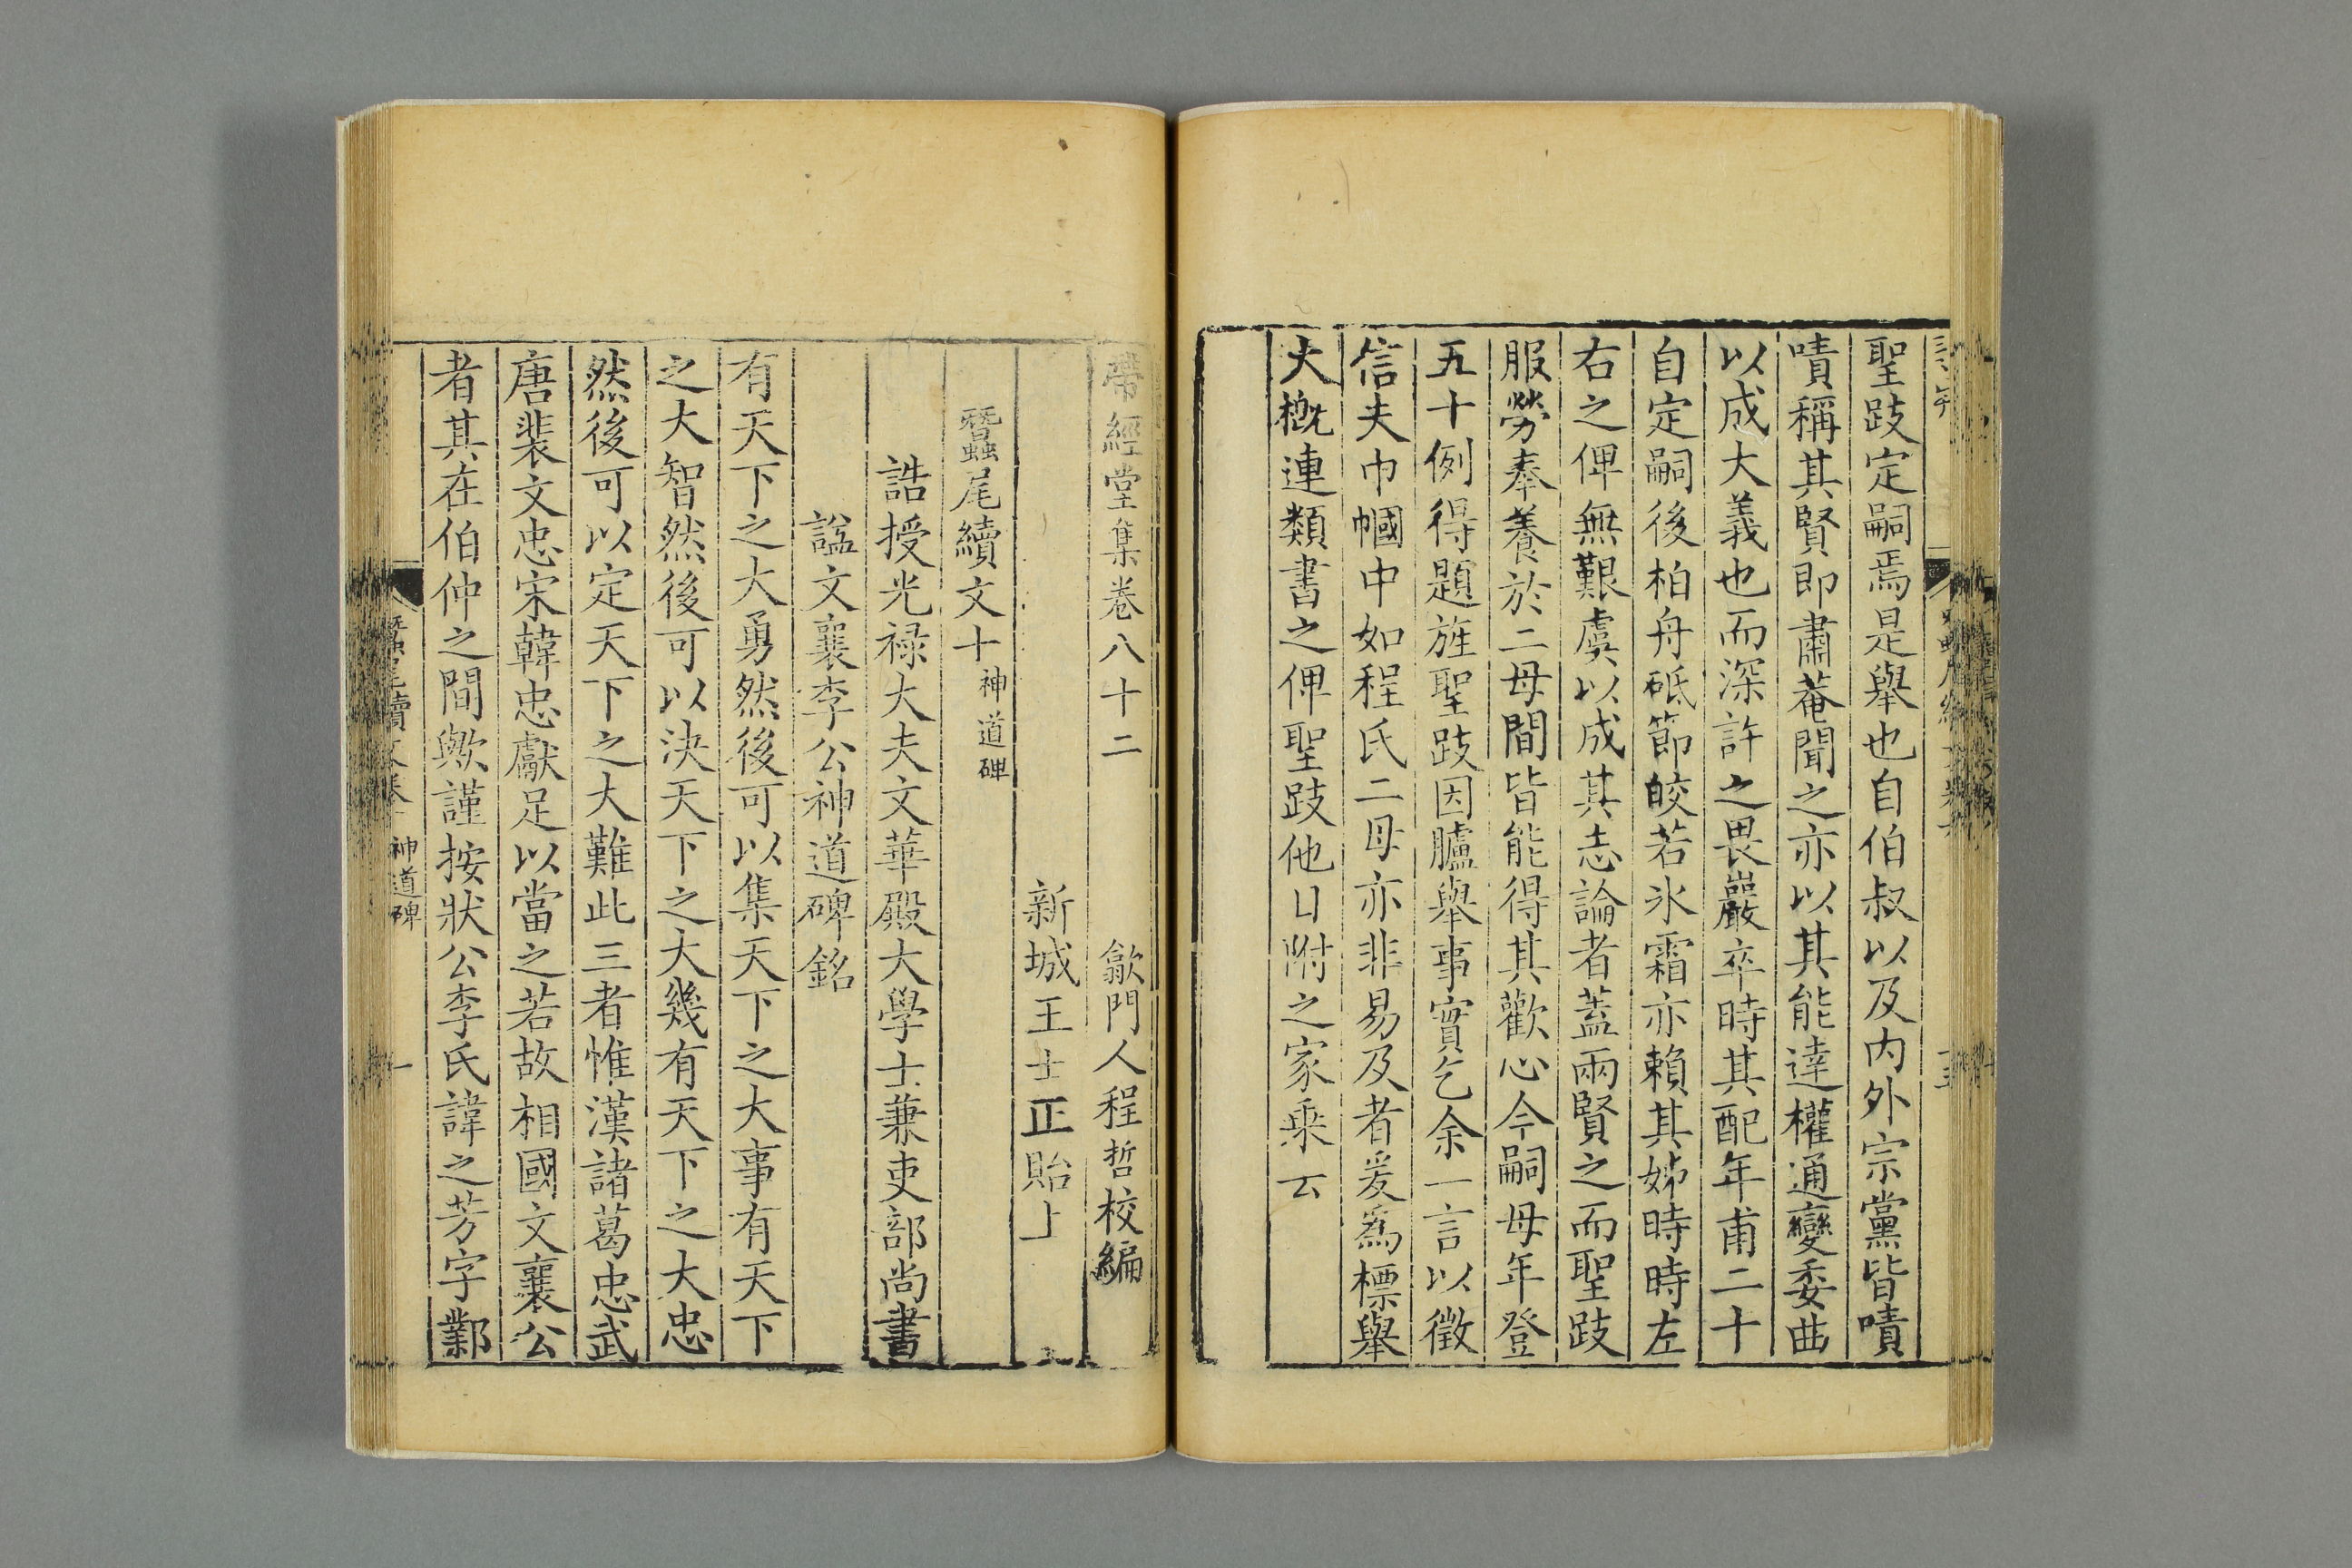 聖跂定嗣焉是舉也自伯叔以及内外宗黨皆嘖
嘖稱其賢即肅菴聞之亦以其能逹權通變委曲
以成大義也而深許之畏巖卒時其配年甫二十
自定嗣後柏舟砥節皎若氷霜亦賴其姊時時左
右之俾無艱虞以成其志論者蓋兩賢之而聖跂
服勞奉養於二母間皆能得其歡心今嗣母年登
五十例得題旌聖跂因臚舉事實乞余一言以徵
信夫巾幗中如程氏二母亦非易及者爰爲標舉
大槪連類書之俾聖跂他日附之家乘云
帶經堂集卷八十二 歙門人程哲校編
新城王士正貽上
蠶尾續文十 神道碑
誥授光禄大夫文華殿大學士兼吏部尚書
諡文襄李公神道碑銘
有天下之大勇然後可以集天下之大事有天下
之大智然後可以決天下之大幾有天下之大忠
然後可以定天下之大難此三者惟漢諸葛忠武
唐裴文忠宋韓忠獻足以當之若故相國文襄公
者其在伯仲之間歟謹按狀公李氏諱之芳字鄴
蠶尾續文卷十 神道碑 一